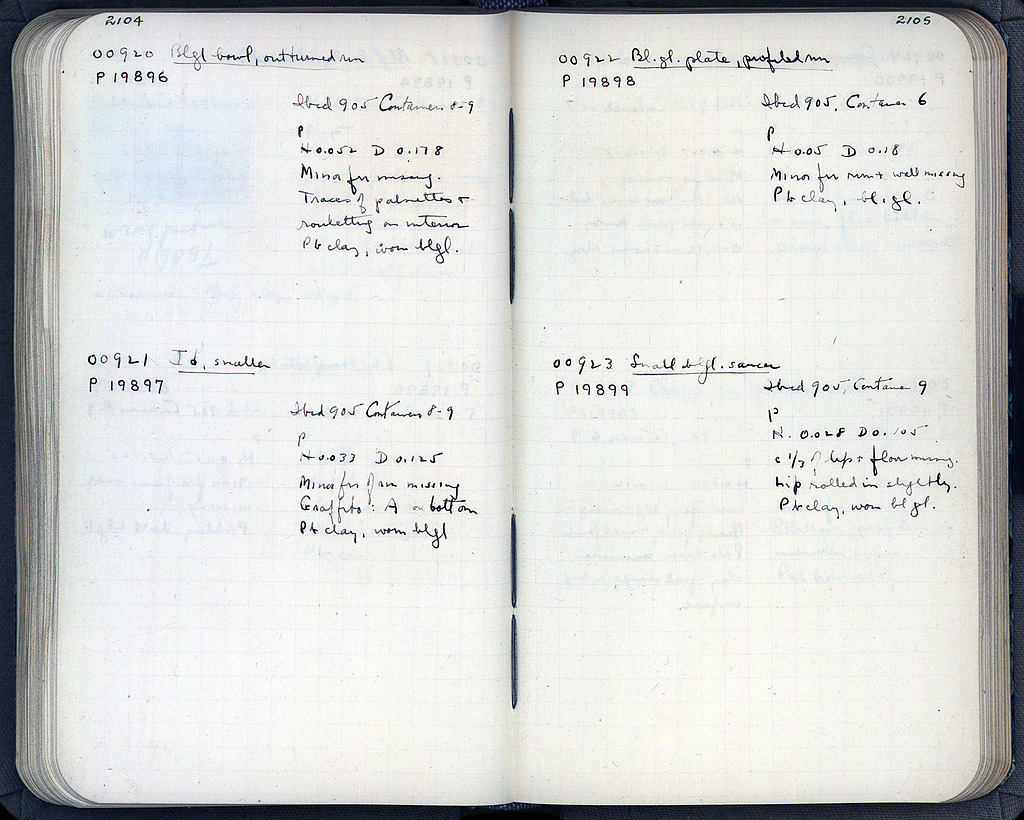 2104
00920 Blgl bowl, outturned rim
P 19896
Ibid 905 Containers 8-9
P
H 0.052 D 0.178
Minor frr missing.
Traces of palmettes +
rouletting on interior
Pk clay, worn blgl.
00921 Id, smaller
P 19897
Ibid 905 Containers 8-9
P
H 0.033 D 0.125
Minor frr of rim missing
Graffito: A on bottom
Pk clay, worn blgl
2105
00922 Bl. gl. plate, profiled rim
P 19898
Ibid 905, Container 6
P
H 0.05 D 0.18
Minor frr rim + wall missing
Pk clay, bl. gl.
00923 Small blgl. saucer
P 19899
Ibid 905, Container 9
P
H. 0.028 D 0.105
c 1/3 of lip + floor missing.
Lip rolled in slightly.
Pk clay, worn bl gl.